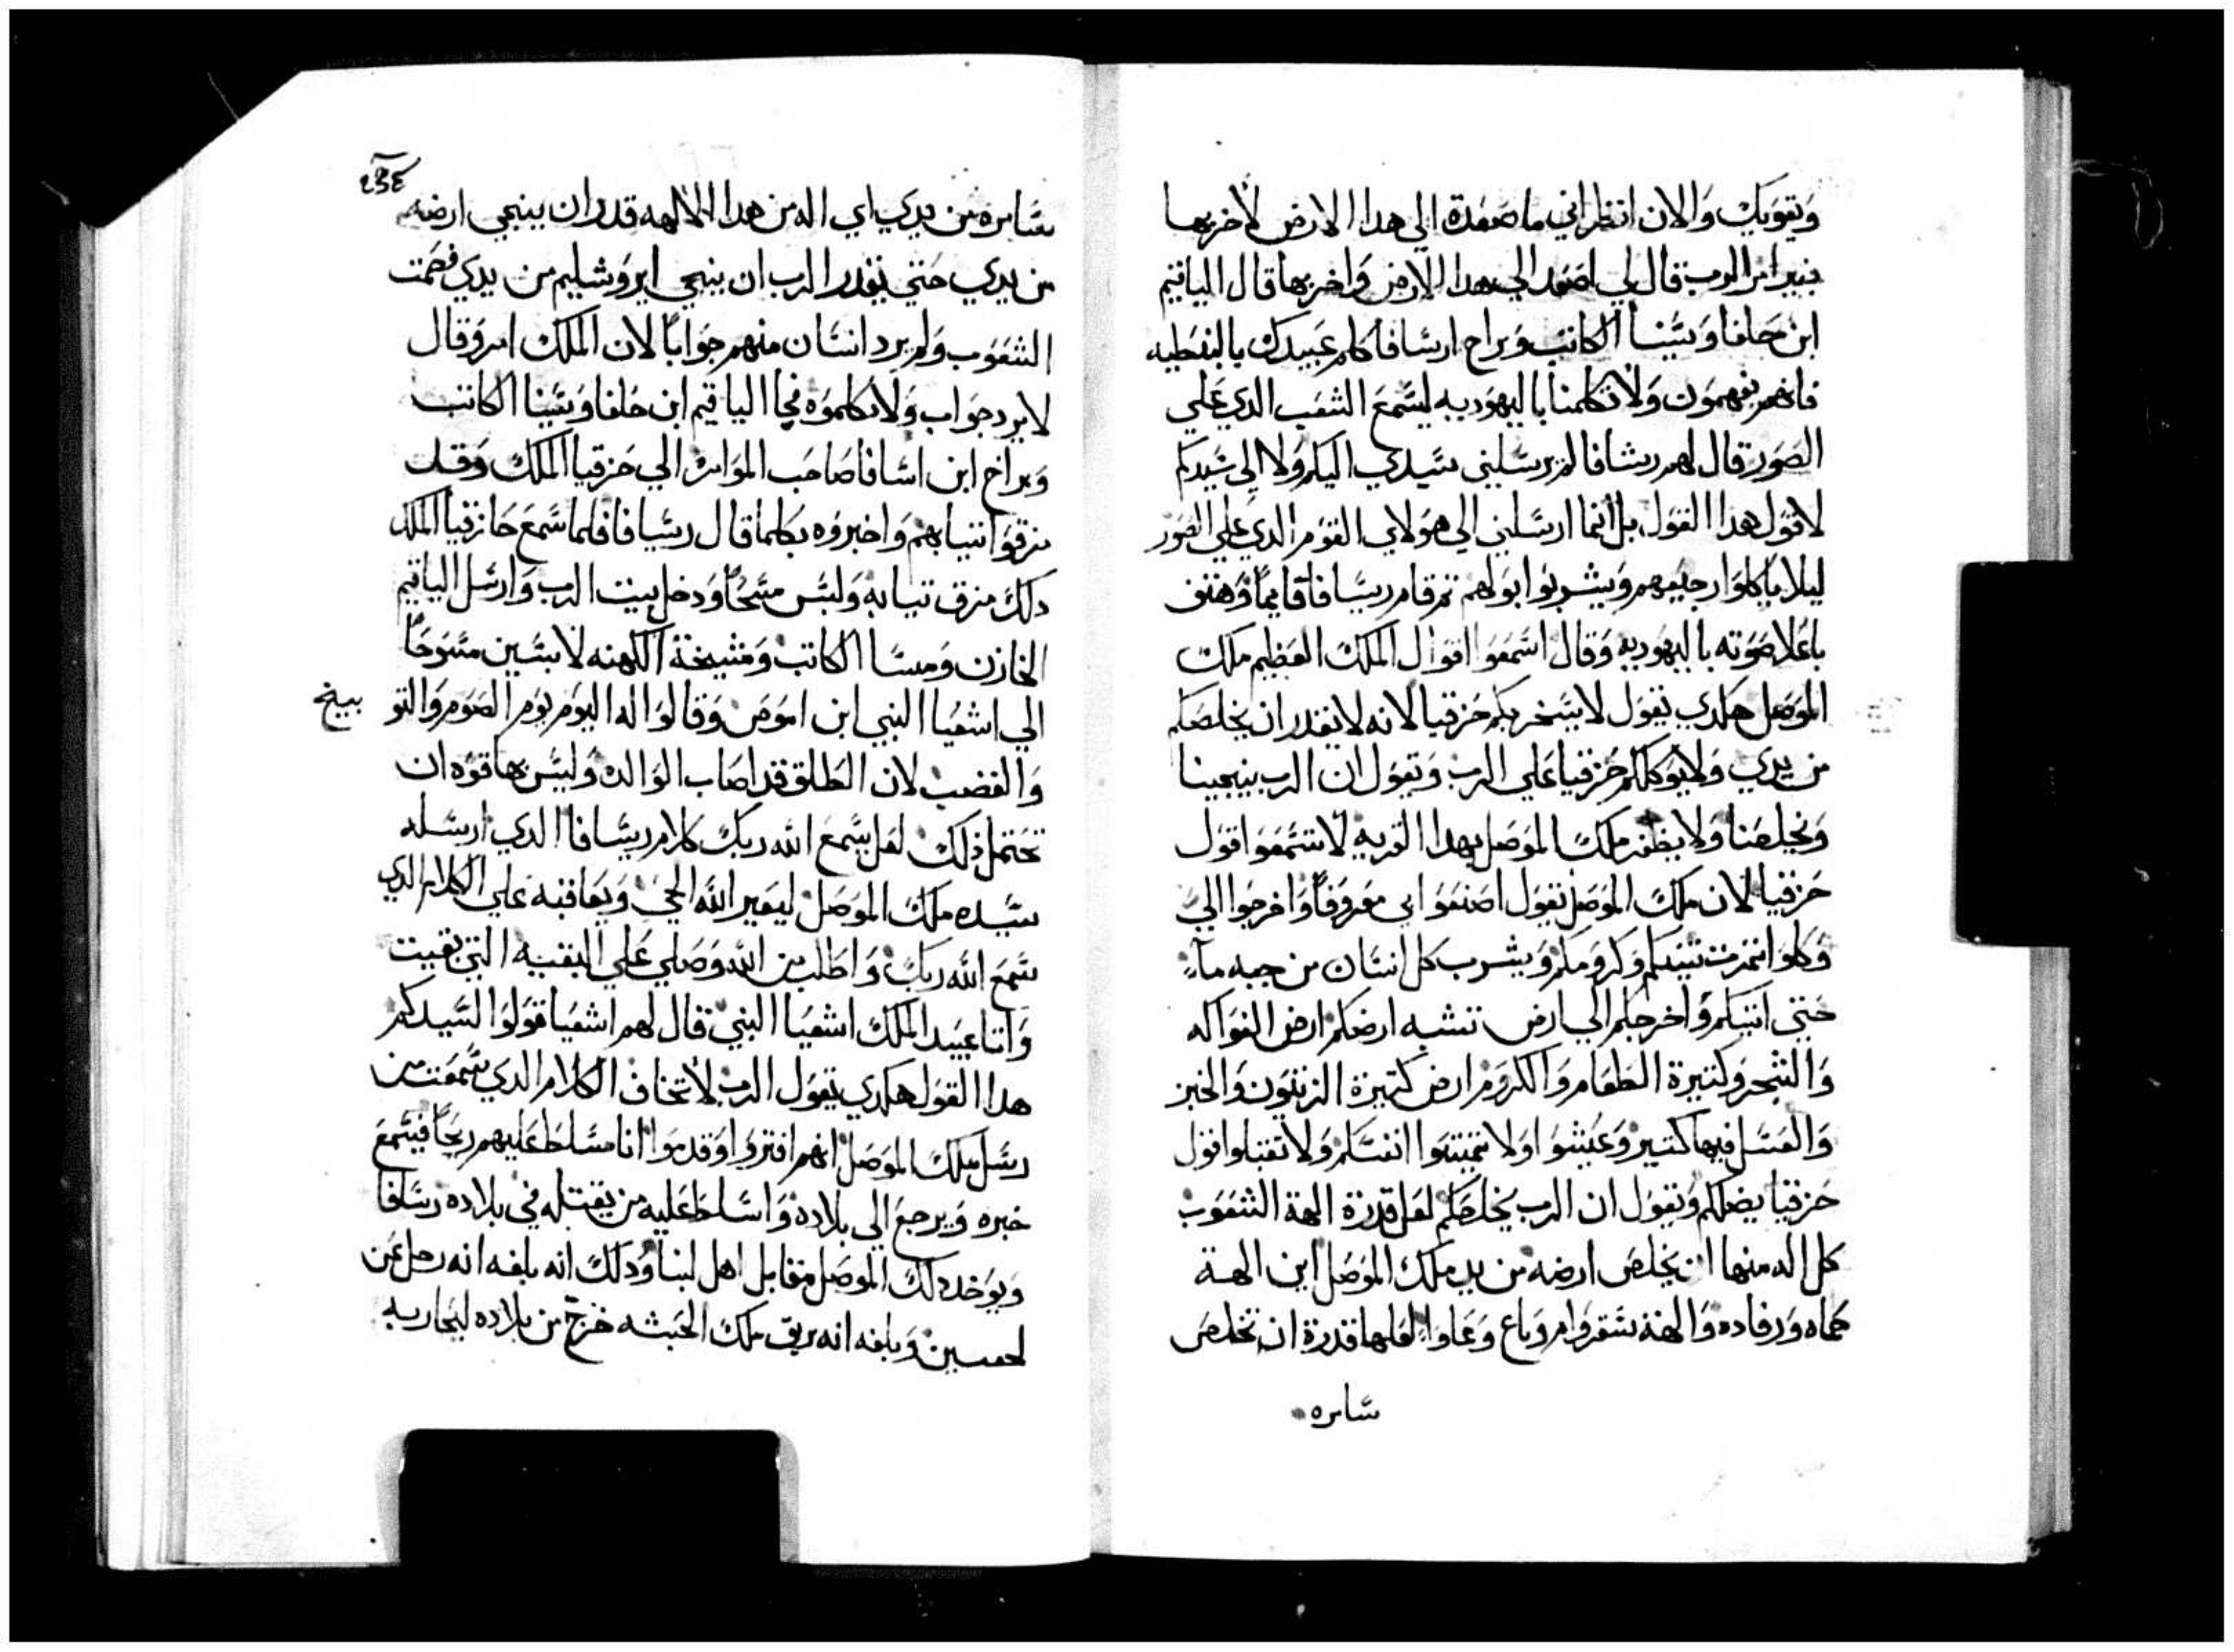 ويقويك والان انظر اني ما صعدة الي هدا الارض لاخربها
بغير امر الرب قال لي اصعد الي هدا الارض واخربها قال الياقيم
ابن حلفا وسينا الكاتب وبراح ارسافا كلم عبيدك بالنفطيه
فانهم يفهمون ولا تكلمنا باليهوديه ليسمع الشعب الدي علي
الصور قال لهم رسافا لم يرسلني سيدي اليكم ولا الي سيدكم
لاقول هدا القول بل انما ارسلني الي هولاي القوم الدي علي الصور
ليلا ياكلوا رجيعهم ويشربوا بولهم تم قام رسافا قايماً وهتف
باعلا صوته باليهوديه وقال اسمعوا اقوال الملك العظيم ملك
الموصل هكدي يقول لا يسخر بكم حزقيا لانه لا يقدر ان يخلصكم
من يدي ولا يوكلكم حزقيا علي الرب ويقول ان الرب ينجينا
ويخلصنا ولا يظفر ملك الموصل بهدا القريه لا تسمعوا قول
حزقيا لان ملك الموصل يقول اصنعوا بي معروفاً واخرجوا الي
وكلوا تمرت تينكم وكرومكم ويشرب كل انسان من جبه مآء
حتي اتيكم واخرجكم الي ارض تشبه ارضكم ارض الفواكه
والشجر وكتيرة الطعام والكروم ارض كتيرة الزيتون والخبز
والعسل فيها كتير وعيشوا ولا تميتوا انفسكم ولا تقبلوا قول
حزقيا يضلكم ويقول ان الرب يخلصكم لعل قدرة الهة الشعوب
كل اله منها ان يخلص ارضه من يد ملك الموصل اين الهة
حماه ورفاده والهة سفروام وباع وعاوا لعلها قدرة ان تخلص
سامره
سامره من يدي اي اله من هدا الالهه قدر ان ينجي ارضه
من يدي حتي يقدر الرب ان ينجي ايروشليم من يدي فصمت
الشعوب ولم يرد انسان منهم جواباً لان الملك امر وقال
لا يرد جواب ولا تكلموه فجا الياقيم ابن حلفا وسينا الكاتب
وبراخ ابن اسافا صاحب الموامره الي حزقيا الملك وقد
مزقوا تيابهم واخبروه بكلما قال رسافا فلما سمع حازقيا الملك
دلك مزق تيابه ولبس مسحاً ودخل بيت الرب وارسل الياقيم
الخازن ومسا الكاتب ومشيخة الكهنه لابسين مسوحاً
الي اشعيا النبي ابن اموص وقالوا له اليوم يوم الصوم والتو
بيخ
والغضب لان الطلق قد اصاب الوالده وليس بها قوه ان
تحتمل دلك لعل يسمع الله ربك كلام رسافا الدي ارسله
سيده ملك الموصل ليعير الله الحي ويعاقبه علي الكلام الدي
سمع الله ربك واطلب من الله وصلي علي البقيه التي بقيت
واتا عبيد الملك اشعيا النبي قال لهم اشعيا قولوا لسيدكم
هدا القول هكدي يقول الرب لا تخاف الكلام الدي سمعت من
رسل ملك الموصل انهم افتروا وقدموا انا مسلط عليهم ريحاً فيسمع
خبره ويرجع الي بلاده واسلط عليه من يقتله في بلاده رسافا
ويوخد دلك الموصل مقابل اهل لبنا ودلك انه بلغه انه رحل عن
وبلغه انه ملك الحبشه خرج من بلاده ليحاربه